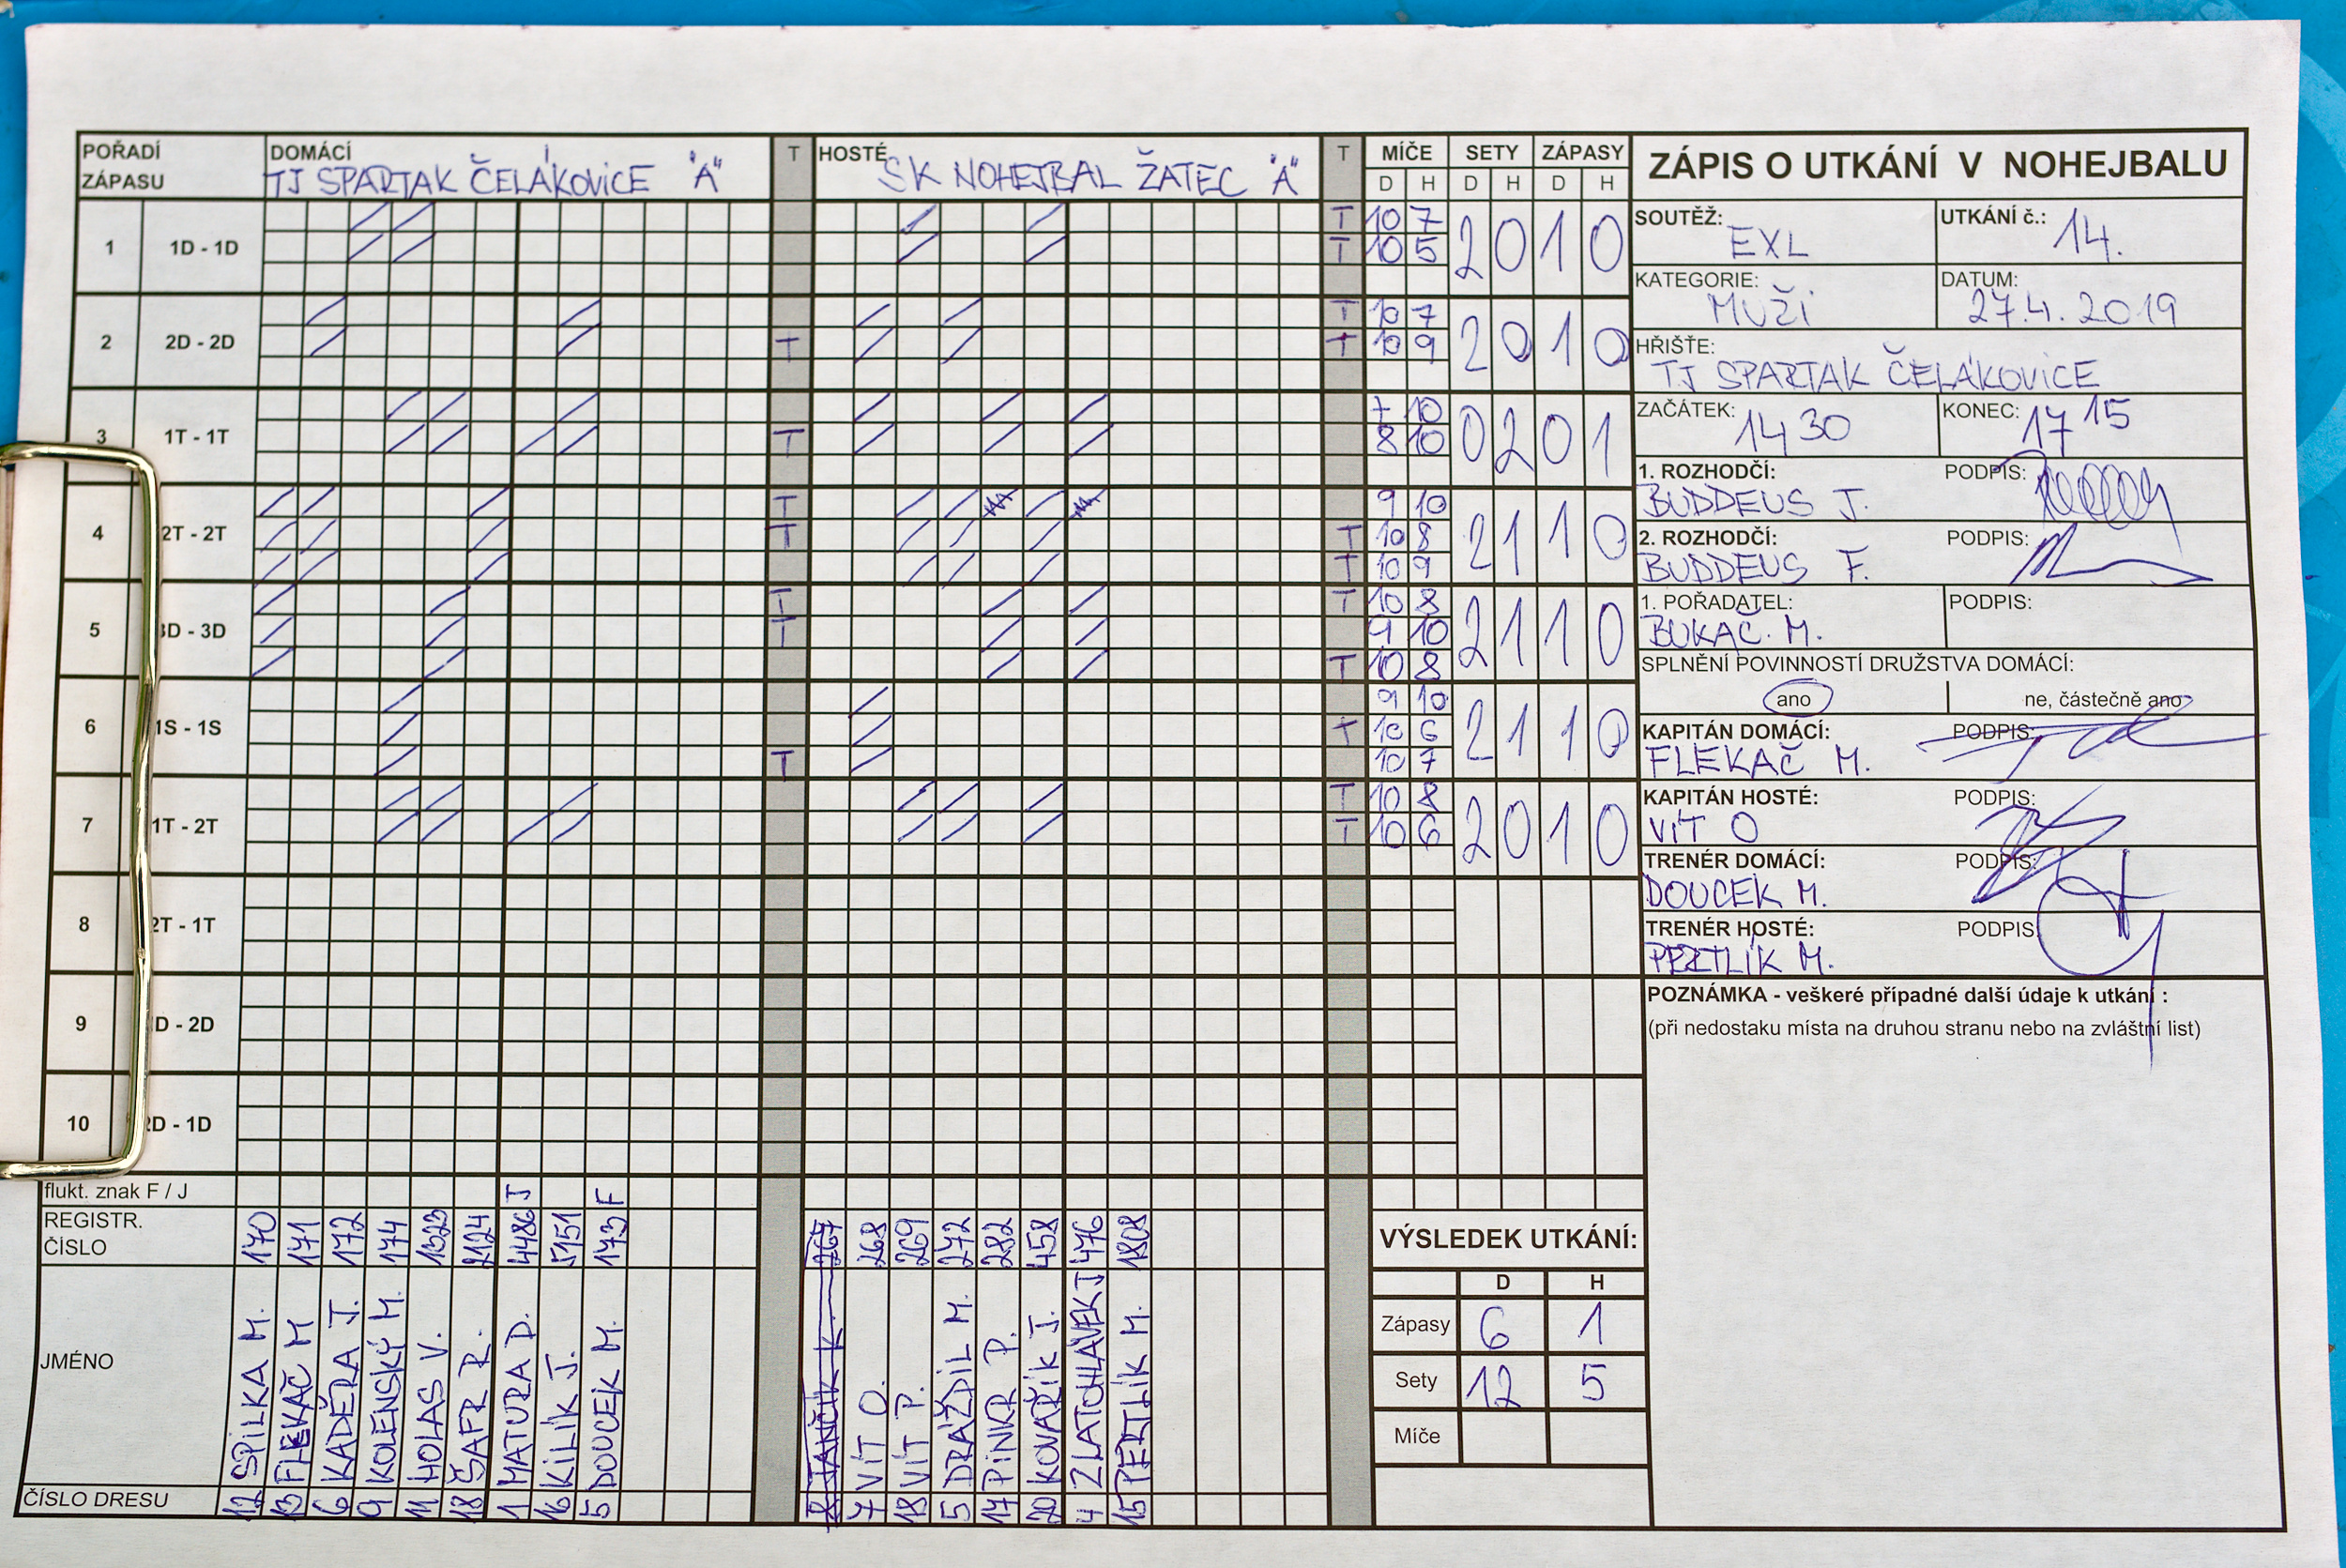 POŘADÍ ZÁPASU
DOMÁCÍ
TJ SPARTAK ČELÁKOVICE "A"
T
HOSTÉ
SK NOHEJBAL ŽATEC "A"
T
MÍČE SETY ZÁPASY
D H D H D H
1 1D - 1D T 10 7 2 0 1 0
T 10 5
2 2D - 2D T 10 7 2 0 1 0
T T 10 9
3 1T - 1T 7 10 0 2 0 1
T 8 10
4 2T - 2T T 9 10 2 1 1 0
T T 10 8
T 10 9
5 3D - 3D T T 10 8 2 1 1 0
T 9 10
T 10 8
6 1S - 1S 9 10 2 1 1 0
T 10 6
T 10 7
7 1T - 2T T 10 8 2 0 1 0
T 10 6
8 2T - 1T
9 D - 2D
10 2D - 1D
flukt. znak F / J J F
REGISTR. ČÍSLO
170 171 172 174 1523 2124 4486 5151 173
267 268 269 272 282 458 476 1808
JMÉNO
SPILKA M.
FLEKAČ M
KADĚRA J.
KOLENSKÝ M.
HOLAS V.
ŠAFR R.
MATURA D.
KILÍK J.
DOUCEK M.
JANČÍK K.
VÍT O.
VÍT P.
DRÁŽDIL M.
PINKR P.
KOVAŘÍK J.
ZLATOHLÁVEK J
PERTLÍK M.
ČÍSLO DRESU
12 13 6 9 11 18 1 16 5
8 7 18 5 17 20 4 15
ZÁPIS O UTKÁNÍ V NOHEJBALU
SOUTĚŽ: EXL
UTKÁNÍ č.: 14.
KATEGORIE: MUŽI
DATUM: 27.4.2019
HŘIŠTE:
TJ SPARTAK ČELÁKOVICE
ZAČÁTEK: 14 30
KONEC: 17 15
1. ROZHODČÍ: PODPIS:
BUDDEUS J.
2. ROZHODČÍ: PODPIS:
BUDDEUS F.
1. POŘADATEL: PODPIS:
BUKAČ. M.
SPLNĚNÍ POVINNOSTÍ DRUŽSTVA DOMÁCÍ:
ano ne, částečně ano
KAPITÁN DOMÁCÍ: PODPIS:
FLEKAČ M.
KAPITÁN HOSTÉ: PODPIS:
VÍT O
TRENÉR DOMÁCÍ: PODPIS:
DOUCEK M.
TRENÉR HOSTÉ: PODPIS
PERTLÍK M.
POZNÁMKA - veškeré případné další údaje k utkání :
(při nedostaku místa na druhou stranu nebo na zvláštní list)
VÝSLEDEK UTKÁNÍ:
D H
Zápasy 6 1
Sety 12 5
Míče